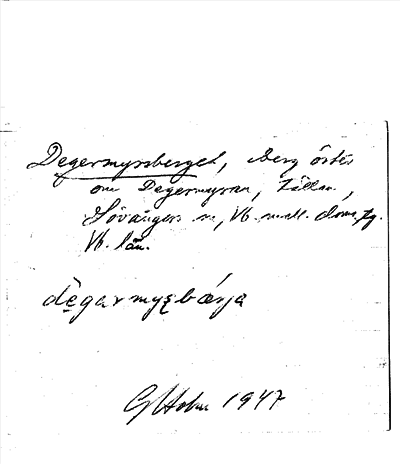 Degermyrsberget, berg öster
om Degermyran, Tällan,
Lövångers sn, Vb. mell. doms. tg.
Vb. län.
dègarmyʂbǽrja
G Holm 1947